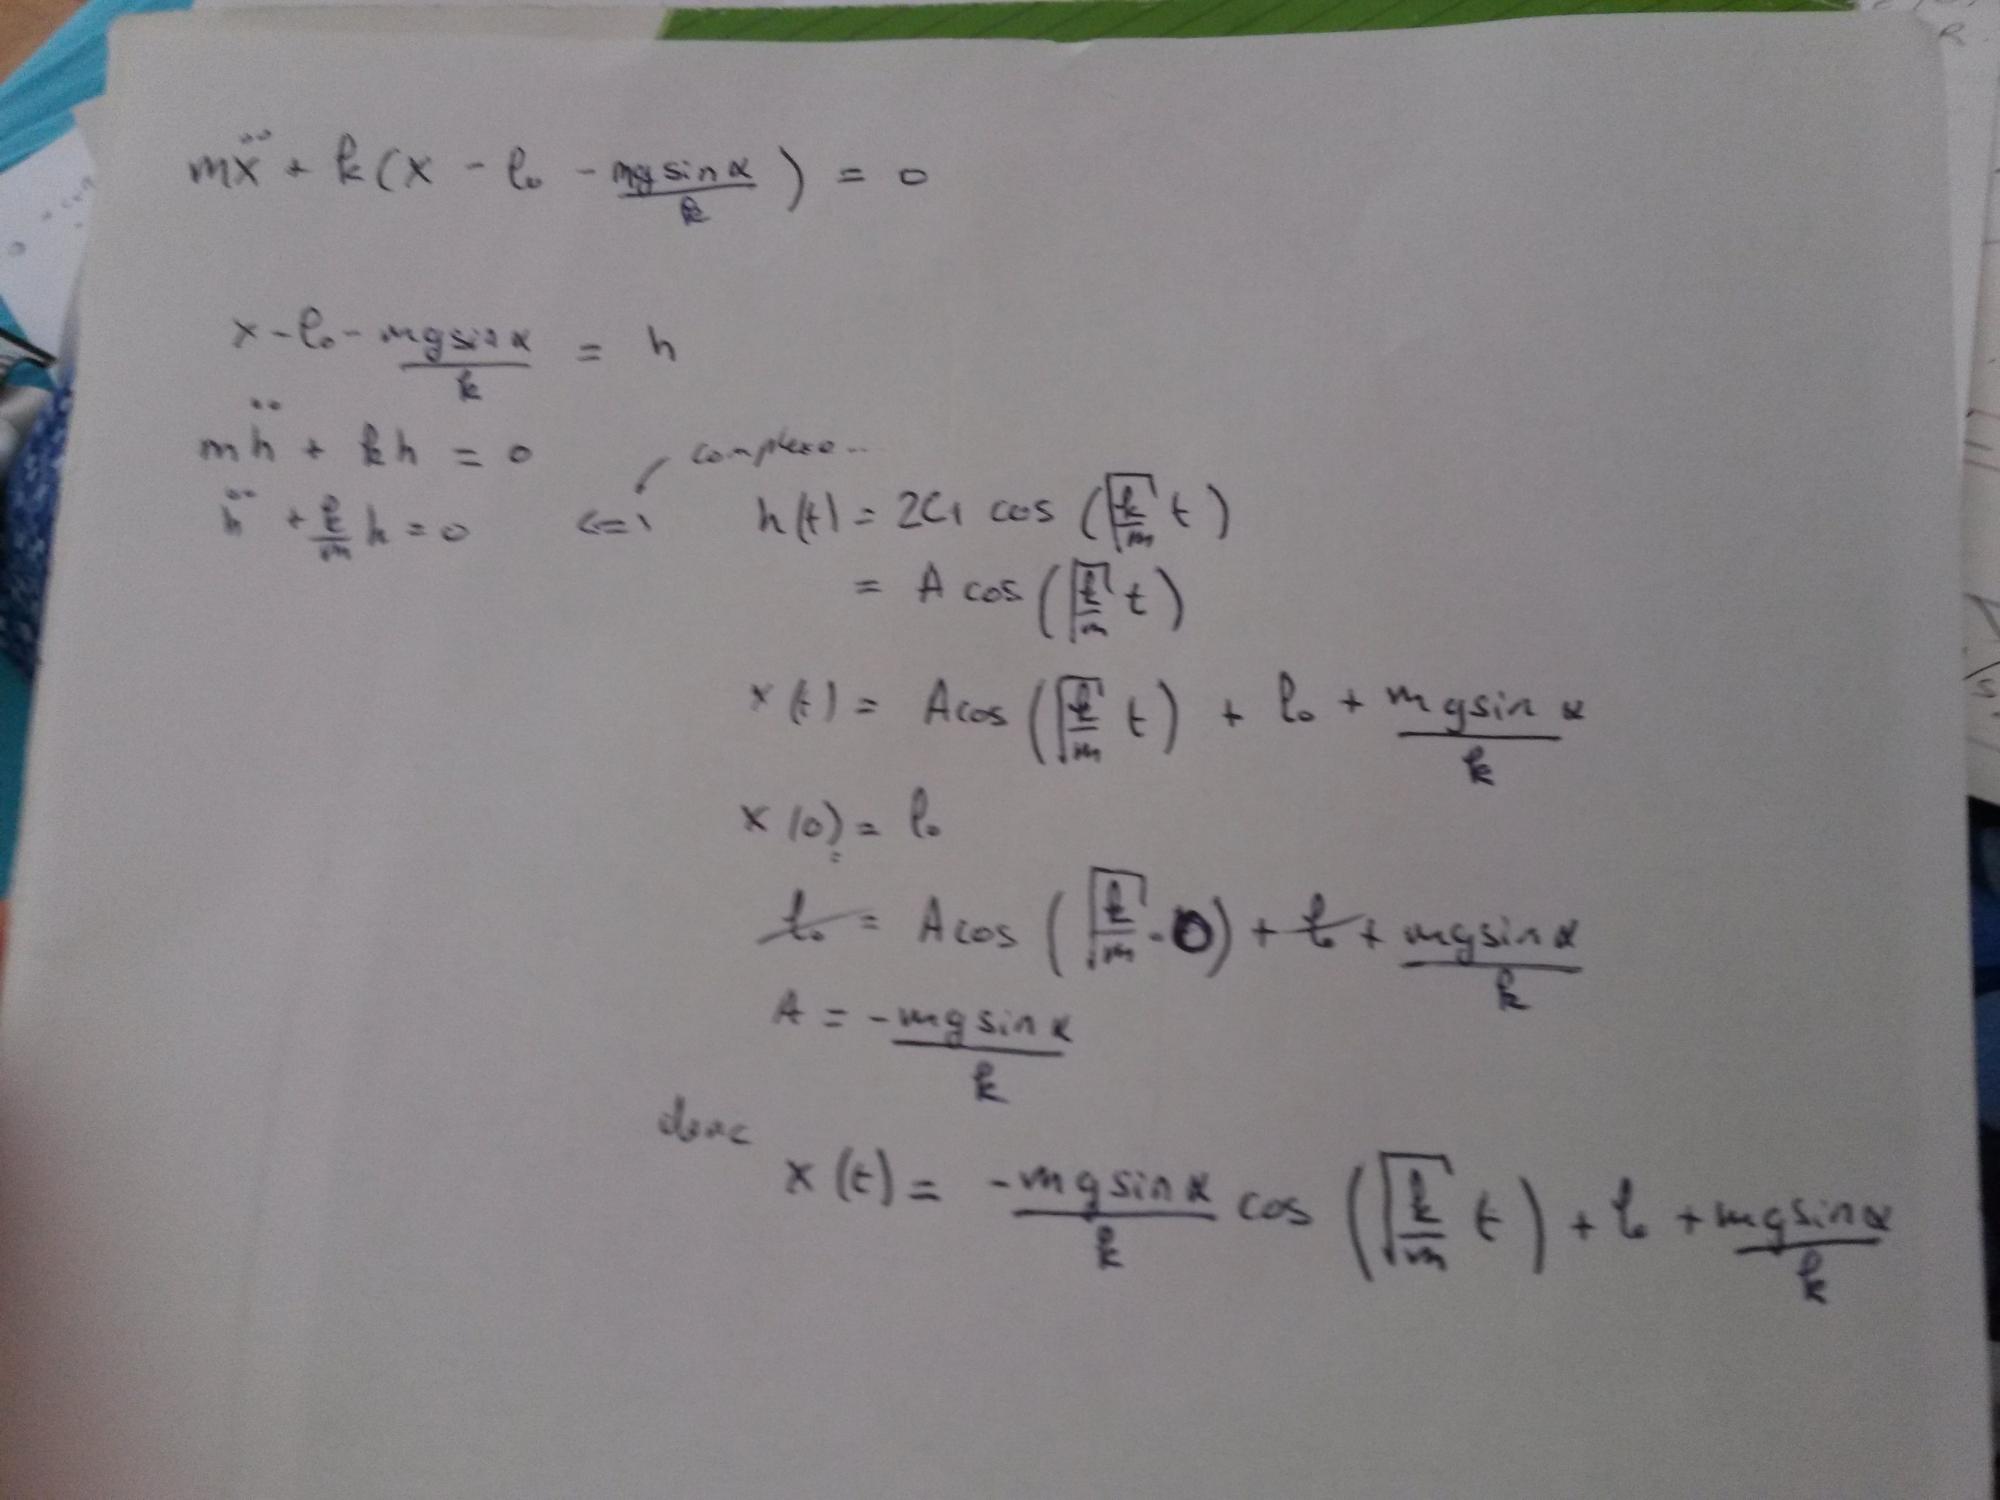 mẍ + k(x - l₀ - mg sin α / k) = 0
x - l₀ - mg sin α / k = h
mḧ + kh = 0
complexe...
ḧ + k/m h = 0 <=> h(t) = 2C₁ cos (√(k/m) t)
= A cos (√(k/m) t)
x(t) = A cos (√(k/m) t) + l₀ + mg sin α / k
x(0) = l₀
l₀ = A cos (√(k/m) · 0) + l₀ + mg sin α / k
A = - mg sin α / k
donc
x(t) = - mg sin α / k cos (√(k/m) t) + l₀ + mg sin α / k